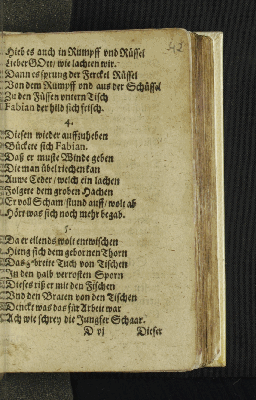 Hieb es auch in Rumpff vnd Rüssel
Lieber GOtt/ wie lachten wir.
Dann es sprung der Ferckel Rüssel
Von dem Rumpff vnd aus der Schüssel
Zu den Füssen vntern Tisch
Fabian der hild sich frisch.
4.
Diesen wieder auffzuheben
Bückete sich Fabian.
Daß er muste Winde geben
Die man übel riechen kan
Auwe Ceder/ welch ein lachen
Folgete dem groben Hachen
Er voll Scham stund auff/ wolt ab
Hört was sich noch mehr begab.
5.
Da er eilends wolt entwischen
Hieng sich dem gebornen Thorn
Das 3-breite Tuch von Tischen
In den halb verrosten Sporn
Dieses riß er mit den Fischen
Vnd den Braten von den Tischen
Denckt was das für Arbeit war
Ach wie schrey die Jungfer Schaar.
D vj
Dieser